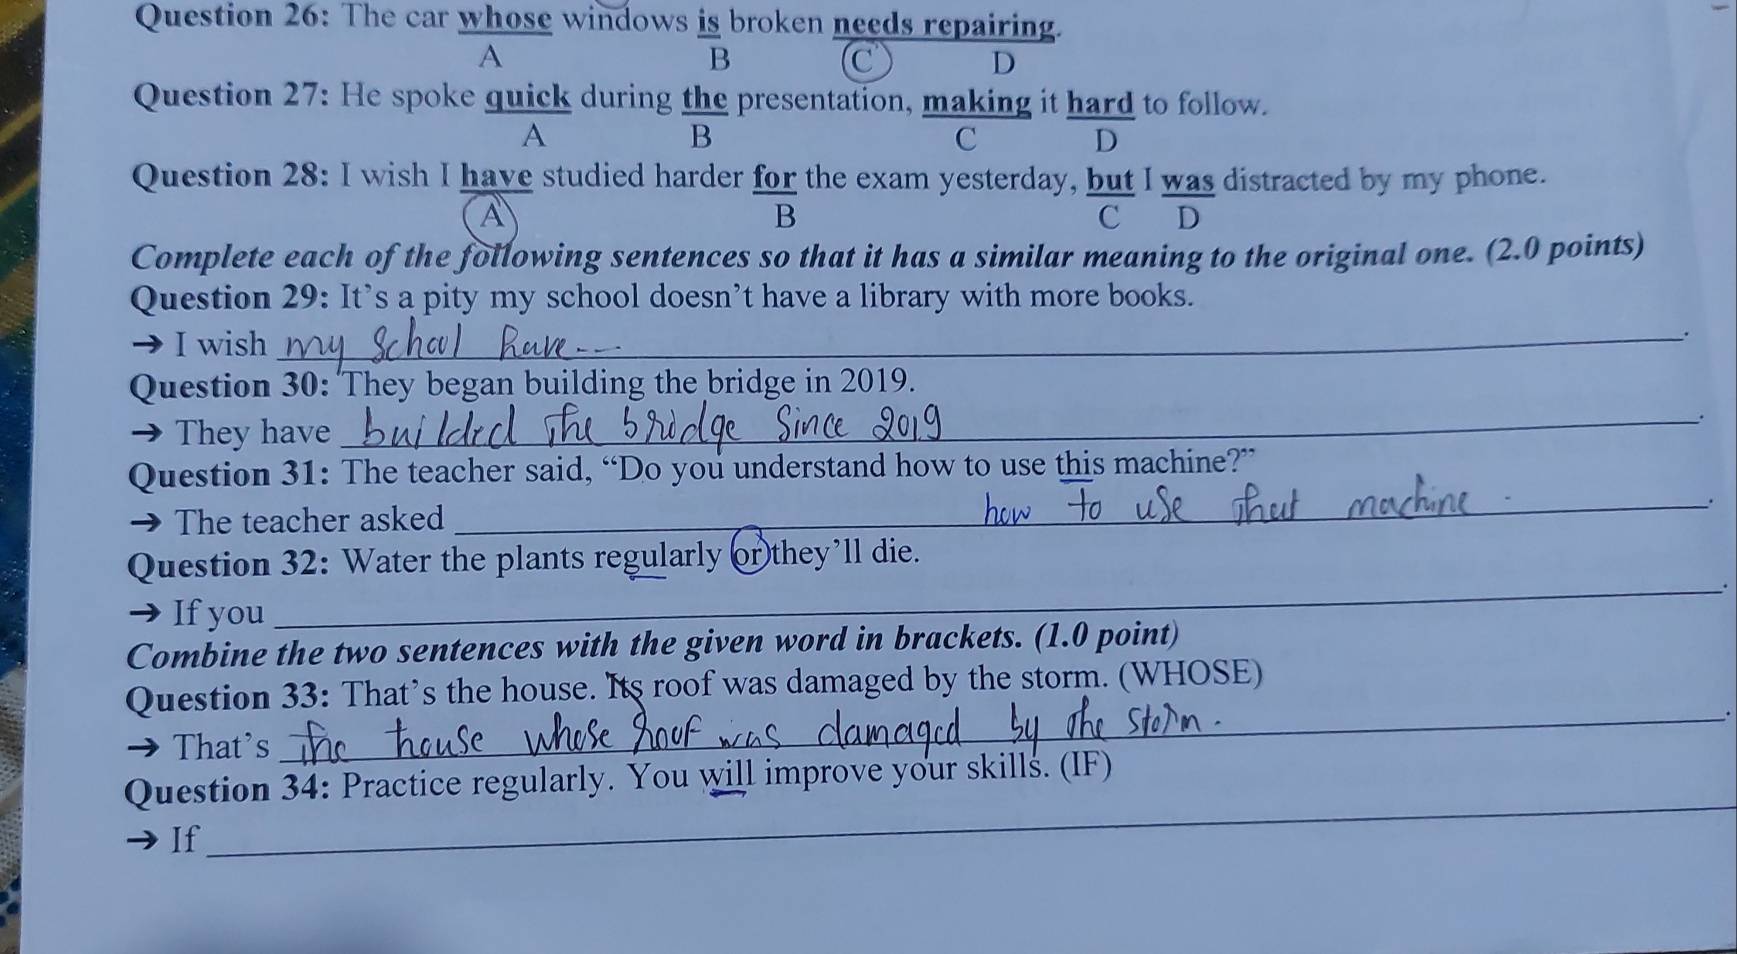 Question 26: The car whose windows is broken needs repairing.
A B C D
Question 27: He spoke quick during the presentation, making it hard to follow.
A B C D
Question 28: I wish I have studied harder for the exam yesterday, but I was distracted by my phone.
A B C D
Complete each of the following sentences so that it has a similar meaning to the original one. (2.0 points)
Question 29: It's a pity my school doesn't have a library with more books.
→ I wish my school have ---
Question 30: They began building the bridge in 2019.
→ They have builded the bridge since 2019.
Question 31: The teacher said, “Do you understand how to use this machine?”
→ The teacher asked how to use that machine.
Question 32: Water the plants regularly or they'll die.
→ If you.
Combine the two sentences with the given word in brackets. (1.0 point)
Question 33: That's the house. Its roof was damaged by the storm. (WHOSE)
→ That's the house whose roof was damaged by the storm.
Question 34: Practice regularly. You will improve your skills. (IF)
→ If